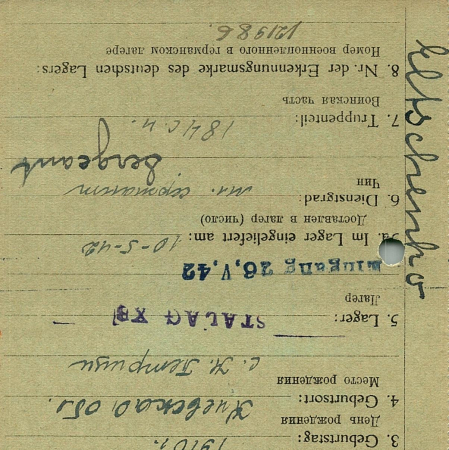 3. Geburtstag: 1910г.
День рождения
4. Geburtsort: Киевская обл
Место рождения
с. Н.
5. Lager: STALAG XB
Лагер
Eingang 26.V.42
Im Lager eingeliefert am: 10-5-42
Доставлен в лагер (число)
6. Dienstgrad: мл. сержант
Чин Sergeant
7. Truppenteil: 184
Воинская часть
8. Nr. der Erkennungsmarke des deutschen Lagers:
Номер военнопленного в германском лагере
121986